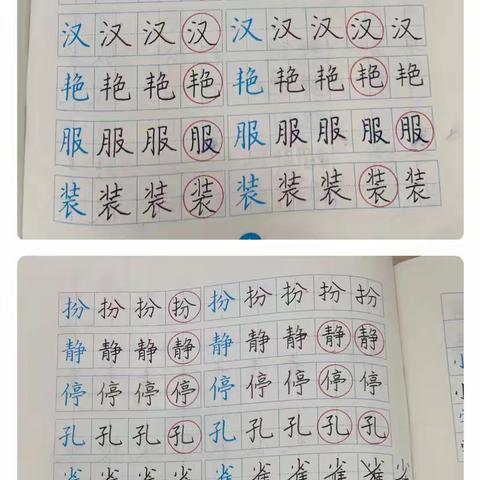 汉汉汉汉汉汉汉汉汉
艳艳艳艳艳艳艳艳艳
服服服服服服服服服
装装装装装装装装装
扮扮扮扮扮扮扮扮扮
静静静静静静静静静
停停停停停停停停停
孔孔孔孔孔孔孔孔孔
雀雀雀雀雀雀雀雀雀